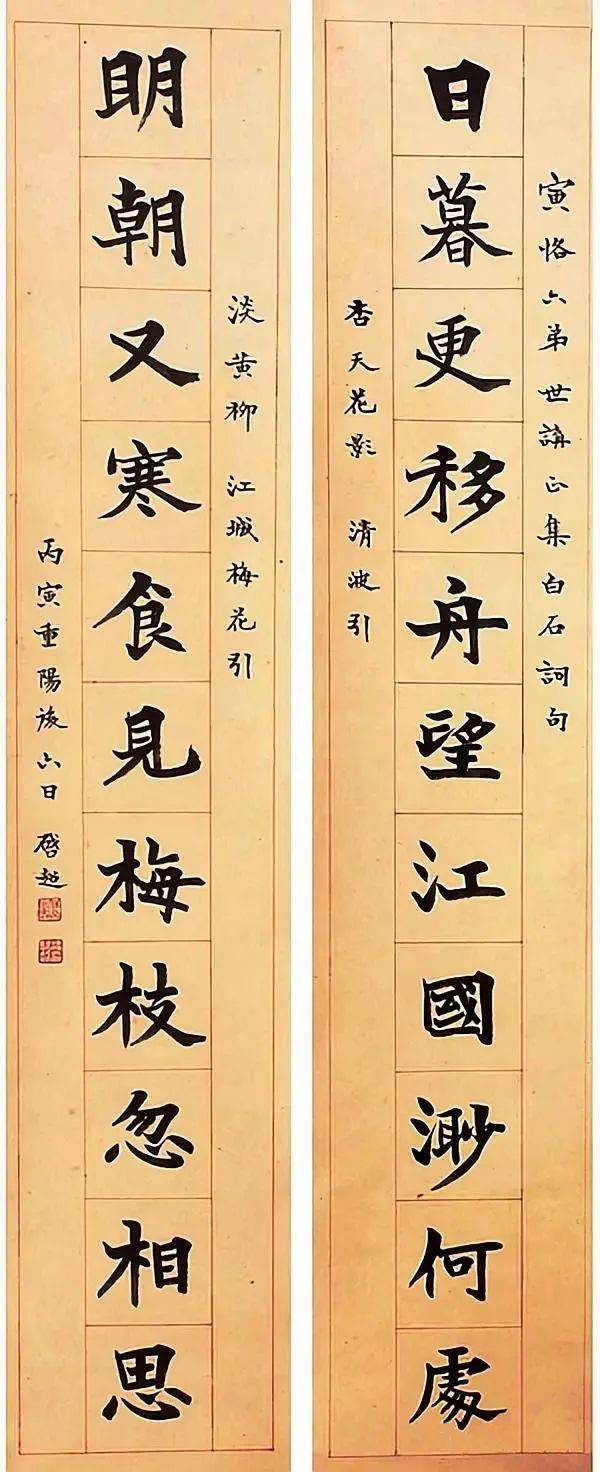 寅恪六弟世講正集白石詞句
日暮更移舟望江國渺何處
杏天花影 清波引
淡黄柳 江城梅花引
明朝又寒食見梅枝忽相思
丙寅重陽後六日 啓超